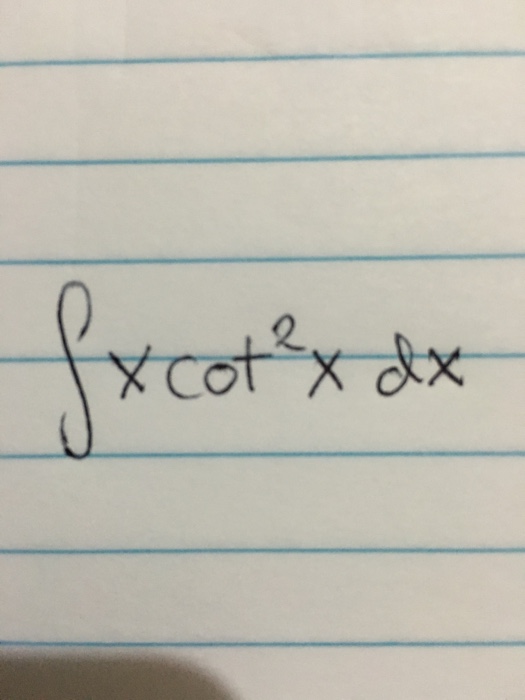 ∫ x cot² x dx